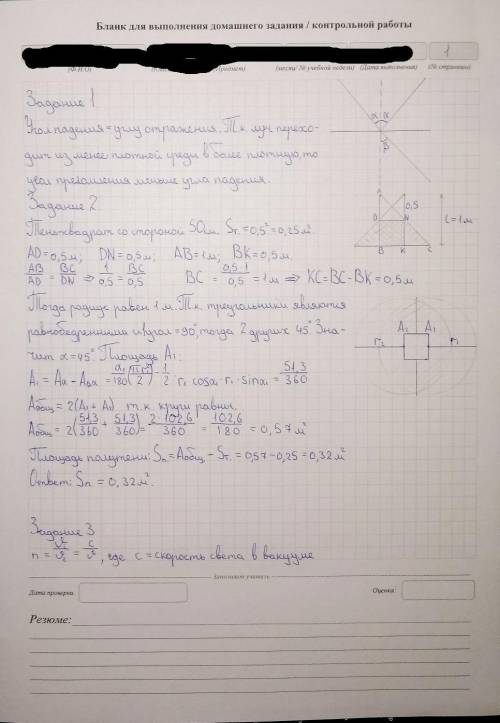 Бланк для выполнения домашнего задания / контрольной работы
1
(Ф.И.О) (Предмет) (место/ № учебной недели) (Дата выполнения) (№ страницы)
Задание 1
Угол падения = углу отражения. Т.к. луч перехо-
дит из менее плотной среды в более плотную, то
угол преломления меньше угла падения.
α α
β
Задание 2
Тень квадрат со стороной 50м. Sт. = 0,5² = 0,25м²
AD = 0,5м; DN = 0,5м; AB = 1м; BK = 0,5м.
AB/AD = BC/DN ⇒ 1/0,5 = BC/0,5 BC = 0,5·1/0,5 = 1м ⇒ KC = BC - BK = 0,5м
A
0,5
D N
B K C
l = 1м
Тогда радиус равен 1м. Т.к. треугольники являются
равнобедренными и угол = 90°, тогда 2 других 45°. Зна-
чит α = 45°. Площадь A₁:
A₁ = Aα - A = α₁/180 (πr²/2) - 1/2 · r₁ cosα₁ · r₁ · sinα₁ = 51,3/360
A₂ A₁
r₂ r₁
Aобщ = 2(A₁ + A₂) т.к. круги равны.
Aобщ = 2(51,3/360 + 51,3/360) = 2·102,6/360 = 102,6/180 = 0,57м²
Площадь полутени: Sп = Aобщ - Sт. = 0,57 - 0,25 = 0,32м²
Ответ: Sп = 0,32м².
Задание 3
n = v₁/v₂ = c/v, где c = скорость света в вакууме
Заполняет учитель
Дата проверки Оценка:
Резюме: